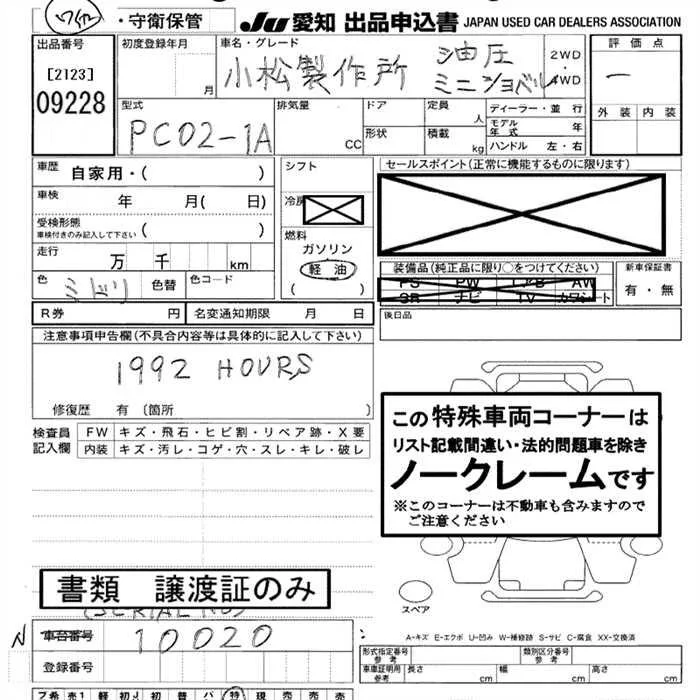 ・守衛保管 JU 愛知 出品申込書 JAPAN USED CAR DEALERS ASSOCIATION
出品番号 初度登録年月 車名・グレード 2WD 評価点
[2123] 月 小松製作所 油圧 ・ 一
09228 ミニショベル 4WD 外装 内装
型式 排気量 ドア 定員 ディーラー・並行
PC02-1A CC 形状 人 モデル年式 年
積載 kg ハンドル 左・右
車歴 自家用・( ) シフト セールスポイント(正常に機能するものに限ります)
車検 年 月( 日) 冷房
受検形態 ( ) 燃料
車検付きのみ記入して下さい ガソリン
走行 万 千 km 軽油 装備品(純正品に限り○をつけてください) 新車保証書
色 ミドリ 色替 色コード ( ) PS PW エアB AW 有・無
SR ナビ TV カワシート
R券 円 名変通知期限 月 日 後日品
注意事項申告欄(不具合内容等は具体的に記入して下さい)
1992 HOURS
修復歴 有 (箇所 )
検査員 FW キズ・飛石・ヒビ割・リペア跡・X要
記入欄 内装 キズ・汚レ・コゲ・穴・スレ・キレ・破レ
この特殊車両コーナーは
リスト記載間違い・法的問題車を除き
ノークレームです
※このコーナーは不動車も含みますので
ご注意ください
書類 譲渡証のみ
(SERIAL NO)
スペア
車台番号 10020
A-キズ E-エクボ U-凹み W-補修跡 S-サビ C-腐食 XX-交換済
登録番号 形式指定番号 参考 類別区分番号 参考
車車証明用 参考 長さ cm 幅 cm 高さ cm